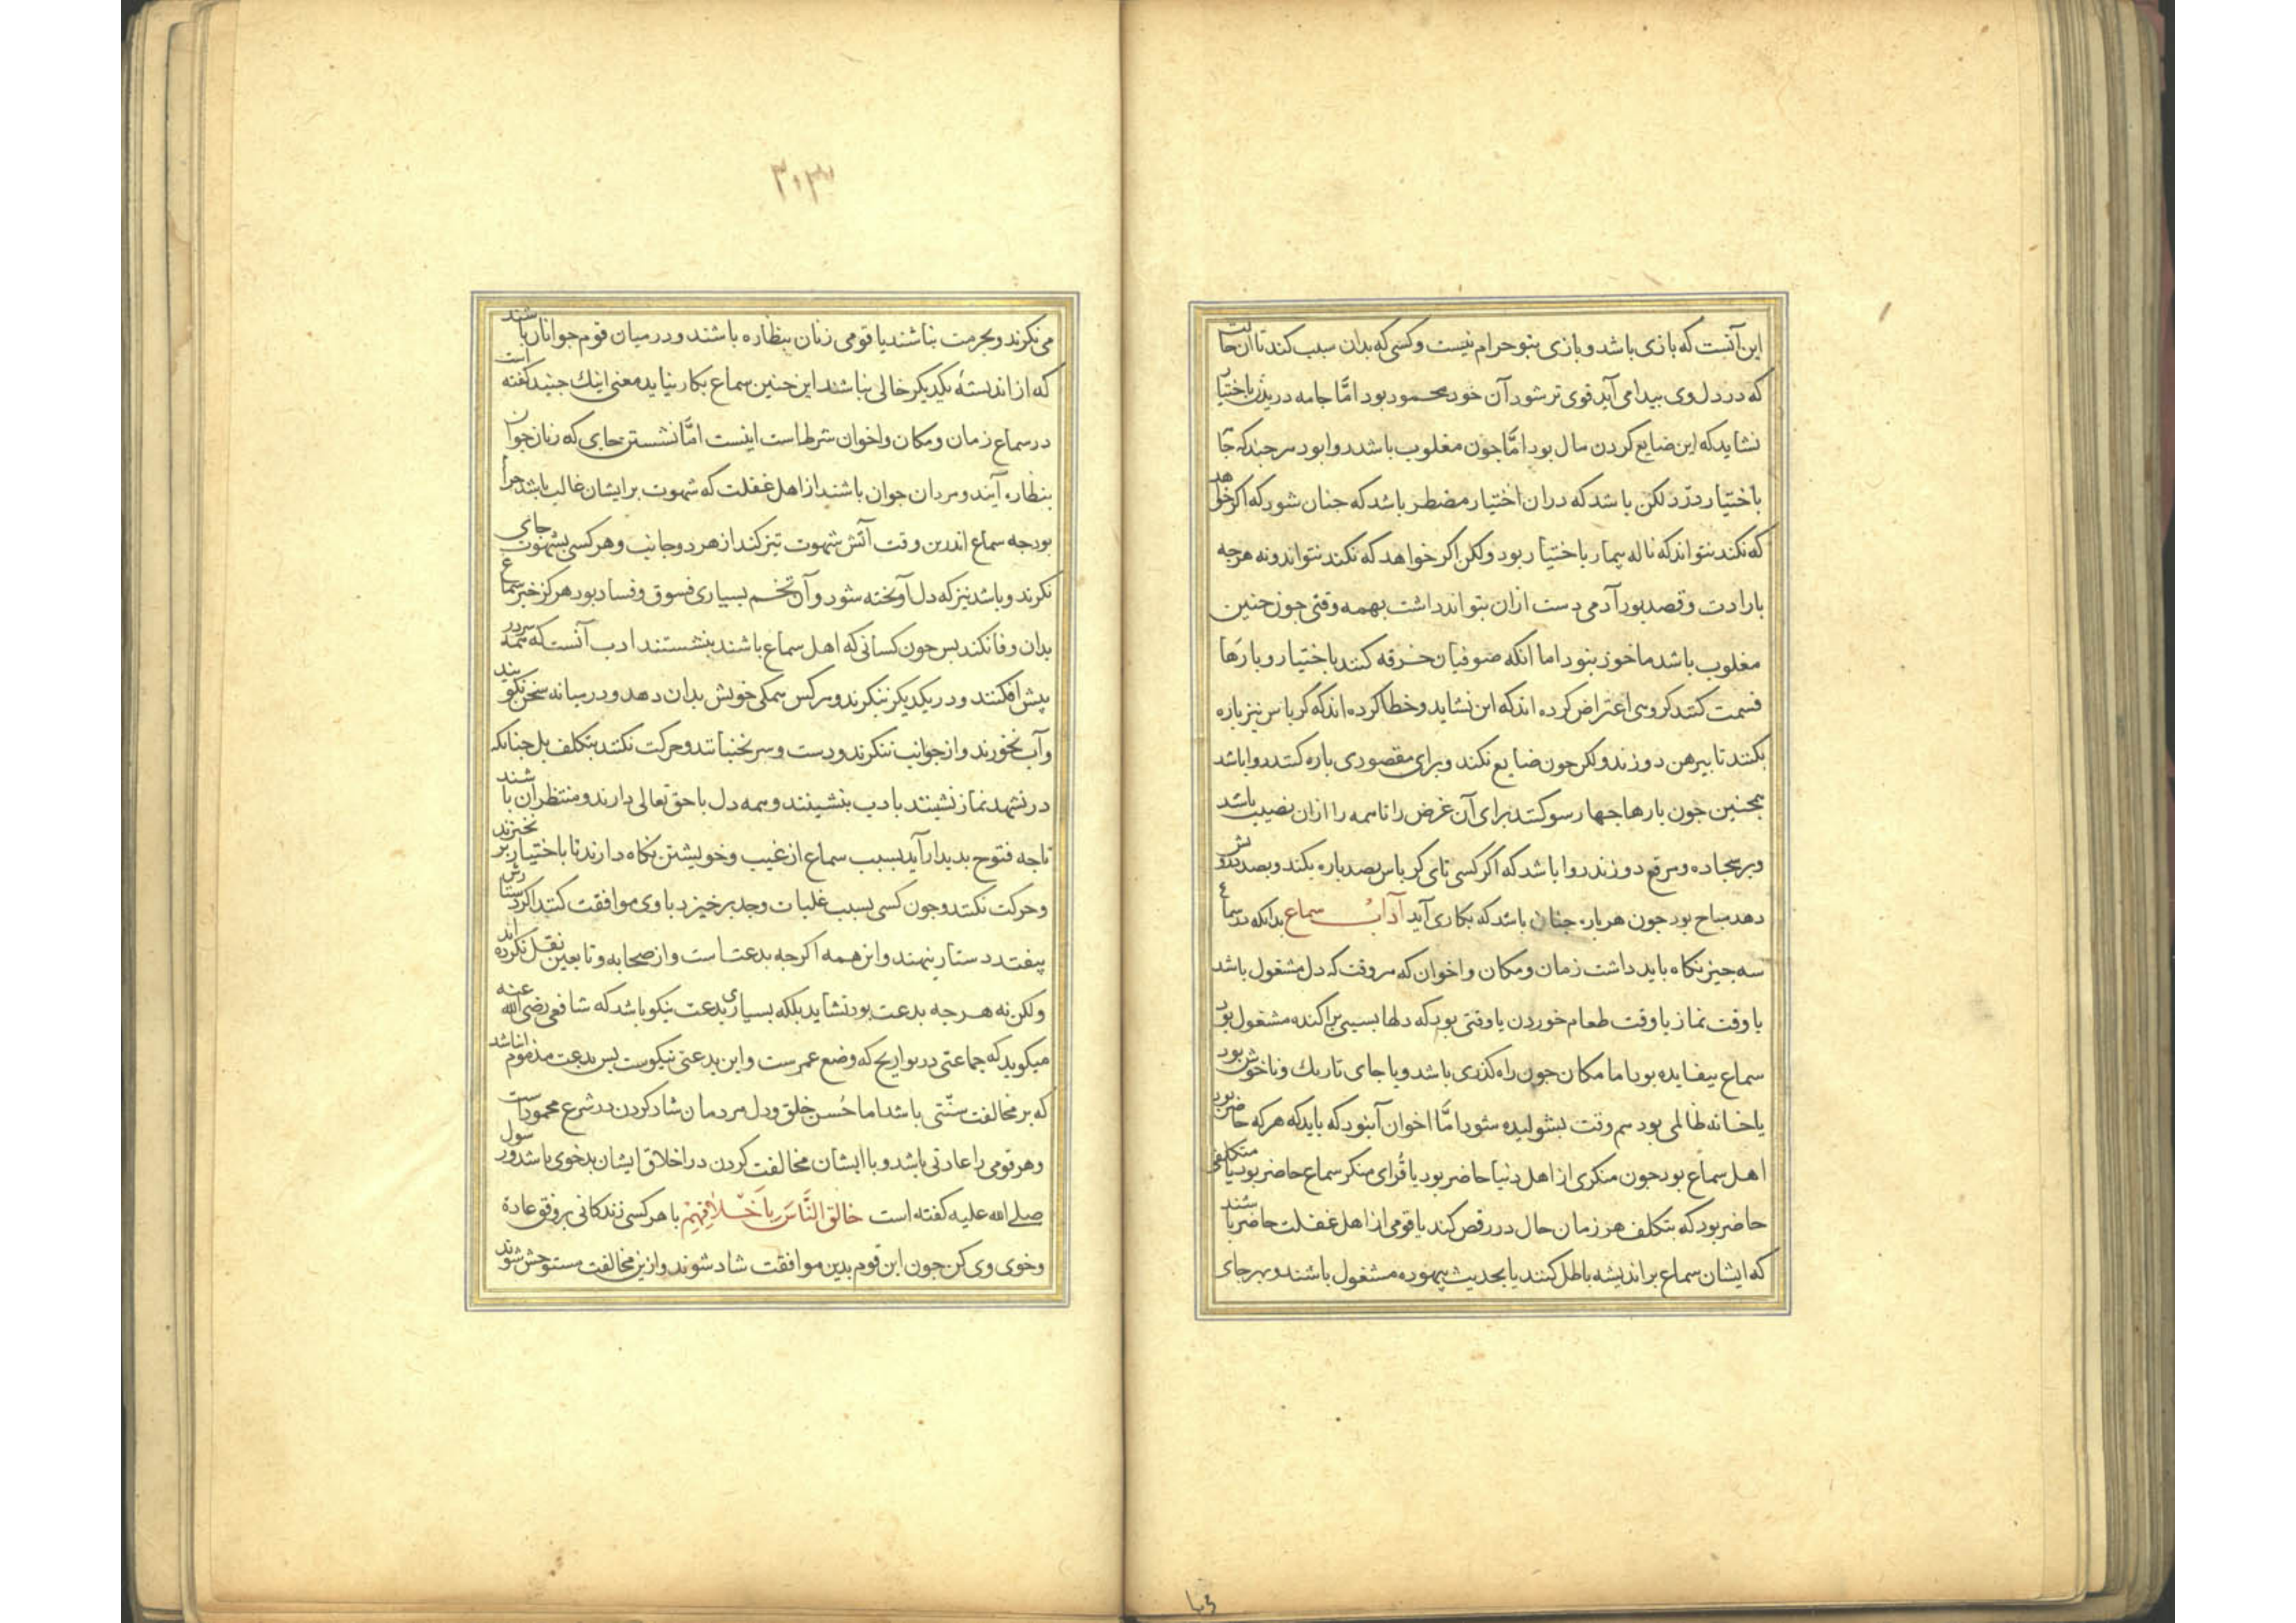 این آنست که بازی باشد و بازی بنبو حرام نیست و کسی که بدان سبب کند تا آن حالت
که در دل وی بیدا می آید قوی تر شود آن خود محمود بود امّا جامه دریدن باختیار
نشاید که این ضایع کردن مال بود امّا جون مغلوب باشد روا بود هر جند که جا
باختیار درّد لکن باشد که در ان اختیار مضطر باشد که جنان شود که اکر خواهد
که نکند نتواند که ناله بیمار باختیار بود ولکن اکر خواهد که نکند نتواند و نه هرجه
بارادت و قصد بود آدمی دست ازان بتواند داشت بهمه وقتی جون جنین
مغلوب باشد ماخوذ نبود اما انکه صوفیان خرقه کنند باختیار و بارها
قسمت کنند کروهی اعتراض کرده اند که این نشاید و خطا کرده اند که کرباس نیز باره
بکنند تا بیرهن دوزند ولکن جون ضایع نکند و برای مقصودی باره کنند روا باشد
همجنین جون بارها جهار سو کنند برای آن غرض را تا همه را ازان نصیب باشد
و بر سجاده و مرقع دوزند روا باشد که اگر کسی تای کرباس بصد باره بکند و بصد درویش
دهد مباح بود جون هر باره جنان باشد که بکاری آید آداب سماع بدانکه در سماع
سه جیز نکاه باید داشت زمان و مکان و اخوان که هر وقت که دل مشغول باشد
یا وقت نماز یا وقت طعام خوردن یا وقتی بود که دلها بسببی براکنده مشغول بود
سماع بیفایده بود اما مکان جون راه کذری باشد و یا جای تاریک و ناخوش بود
یا خانه ظالمی بود همه وقت بشولیده شود امّا اخوان آن بود که باید که هر که حاضر بود
اهل سماع بود جون منکری از اهل دنیا حاضر بود یا قُرای منکر سماع حاضر بود یا متکلفی
حاضر بود که بتکلف هر زمان حال و رقص کند یا قومی از اهل غفلت حاضر باشند
که ایشان سماع بر اندیشه باطل کنند یا بحدیث بیهوده مشغول باشند و بهر جای
۳۰۳
می نکرند و بحرمت نباشند یا قومی زنان بنظاره باشند و در میان قوم جوانان باشند
که از اندیشهٔ یکدیکر خالی نباشند این جنین سماع بکار نیاید معنی اینک جنید کفته است
در سماع زمان و مکان و اخوان شرطست اینست امّا نشستن جای که زنان جوان
بنظاره آیند و مردان جوان باشند از اهل غفلت که شهوت بر ایشان غالب باشد حرام
بود جه سماع اندرین وقت آتش شهوت تیز کند از هر دو جانب و هر کسی بشهوت جای
نکرند و باشد نیز که دل آویخته شود و آن تخم بسیاری فسوق و فساد بود هرکز خیر سماع
بدان وفا نکند بس جون کسانی که اهل سماع باشند بنشستند ادب آنست که همه سر در
پیش افکنند و در یکدیکر ننکرند و هر کس همکی خویش بدان دهد و در میانه سخن نکویند
و آب نخورند و از جوانب ننکرند و دست و سر نجنبانند و حرکت نکنند بتکلف بل جنانکه
در تشهد نماز نشینند بادب بنشینند و همه دل با حق تعالی دارند و منتظر آن باشند
تا جه فتوح بدیدار آید بسبب سماع از غیب و خویشتن نکاه دارند تا باختیار بر نخیزند
و حرکت نکنند و جون کسی بسبب غلبات وجد بر خیزد با وی موافقت کنند اکر دستارش
بیفتد دستار بنهند و این همه اکرجه بدعتست و از صحابه و تابعین نقل نکرده اند
ولکن نه هرجه بدعت بود نشاید بلکه بسیاری بدعت نیکو باشد که شافعی رضی الله عنه
میکوید که جماعتی در تراویح که وضع عمرست و این بدعتی نیکوست بس بدعت مذموم آن باشد
که بر مخالفت سنّتی باشد اما حُسن خلق و دل مردمان شاد کردن در شرع محمودست
و هر قومی را عادتی باشد و با ایشان مخالفت کردن در اخلاق ایشان بدخوی باشد و رسول
صلی الله علیه کفته است خَالِقِ النَّاسَ بِاَخْلَاقِهِمْ با هر کسی زندکانی بر وفق عادة
و خوی وی کن جون این قوم بدین موافقت شاد شوند و از ین مخالفت مستوحش شوند